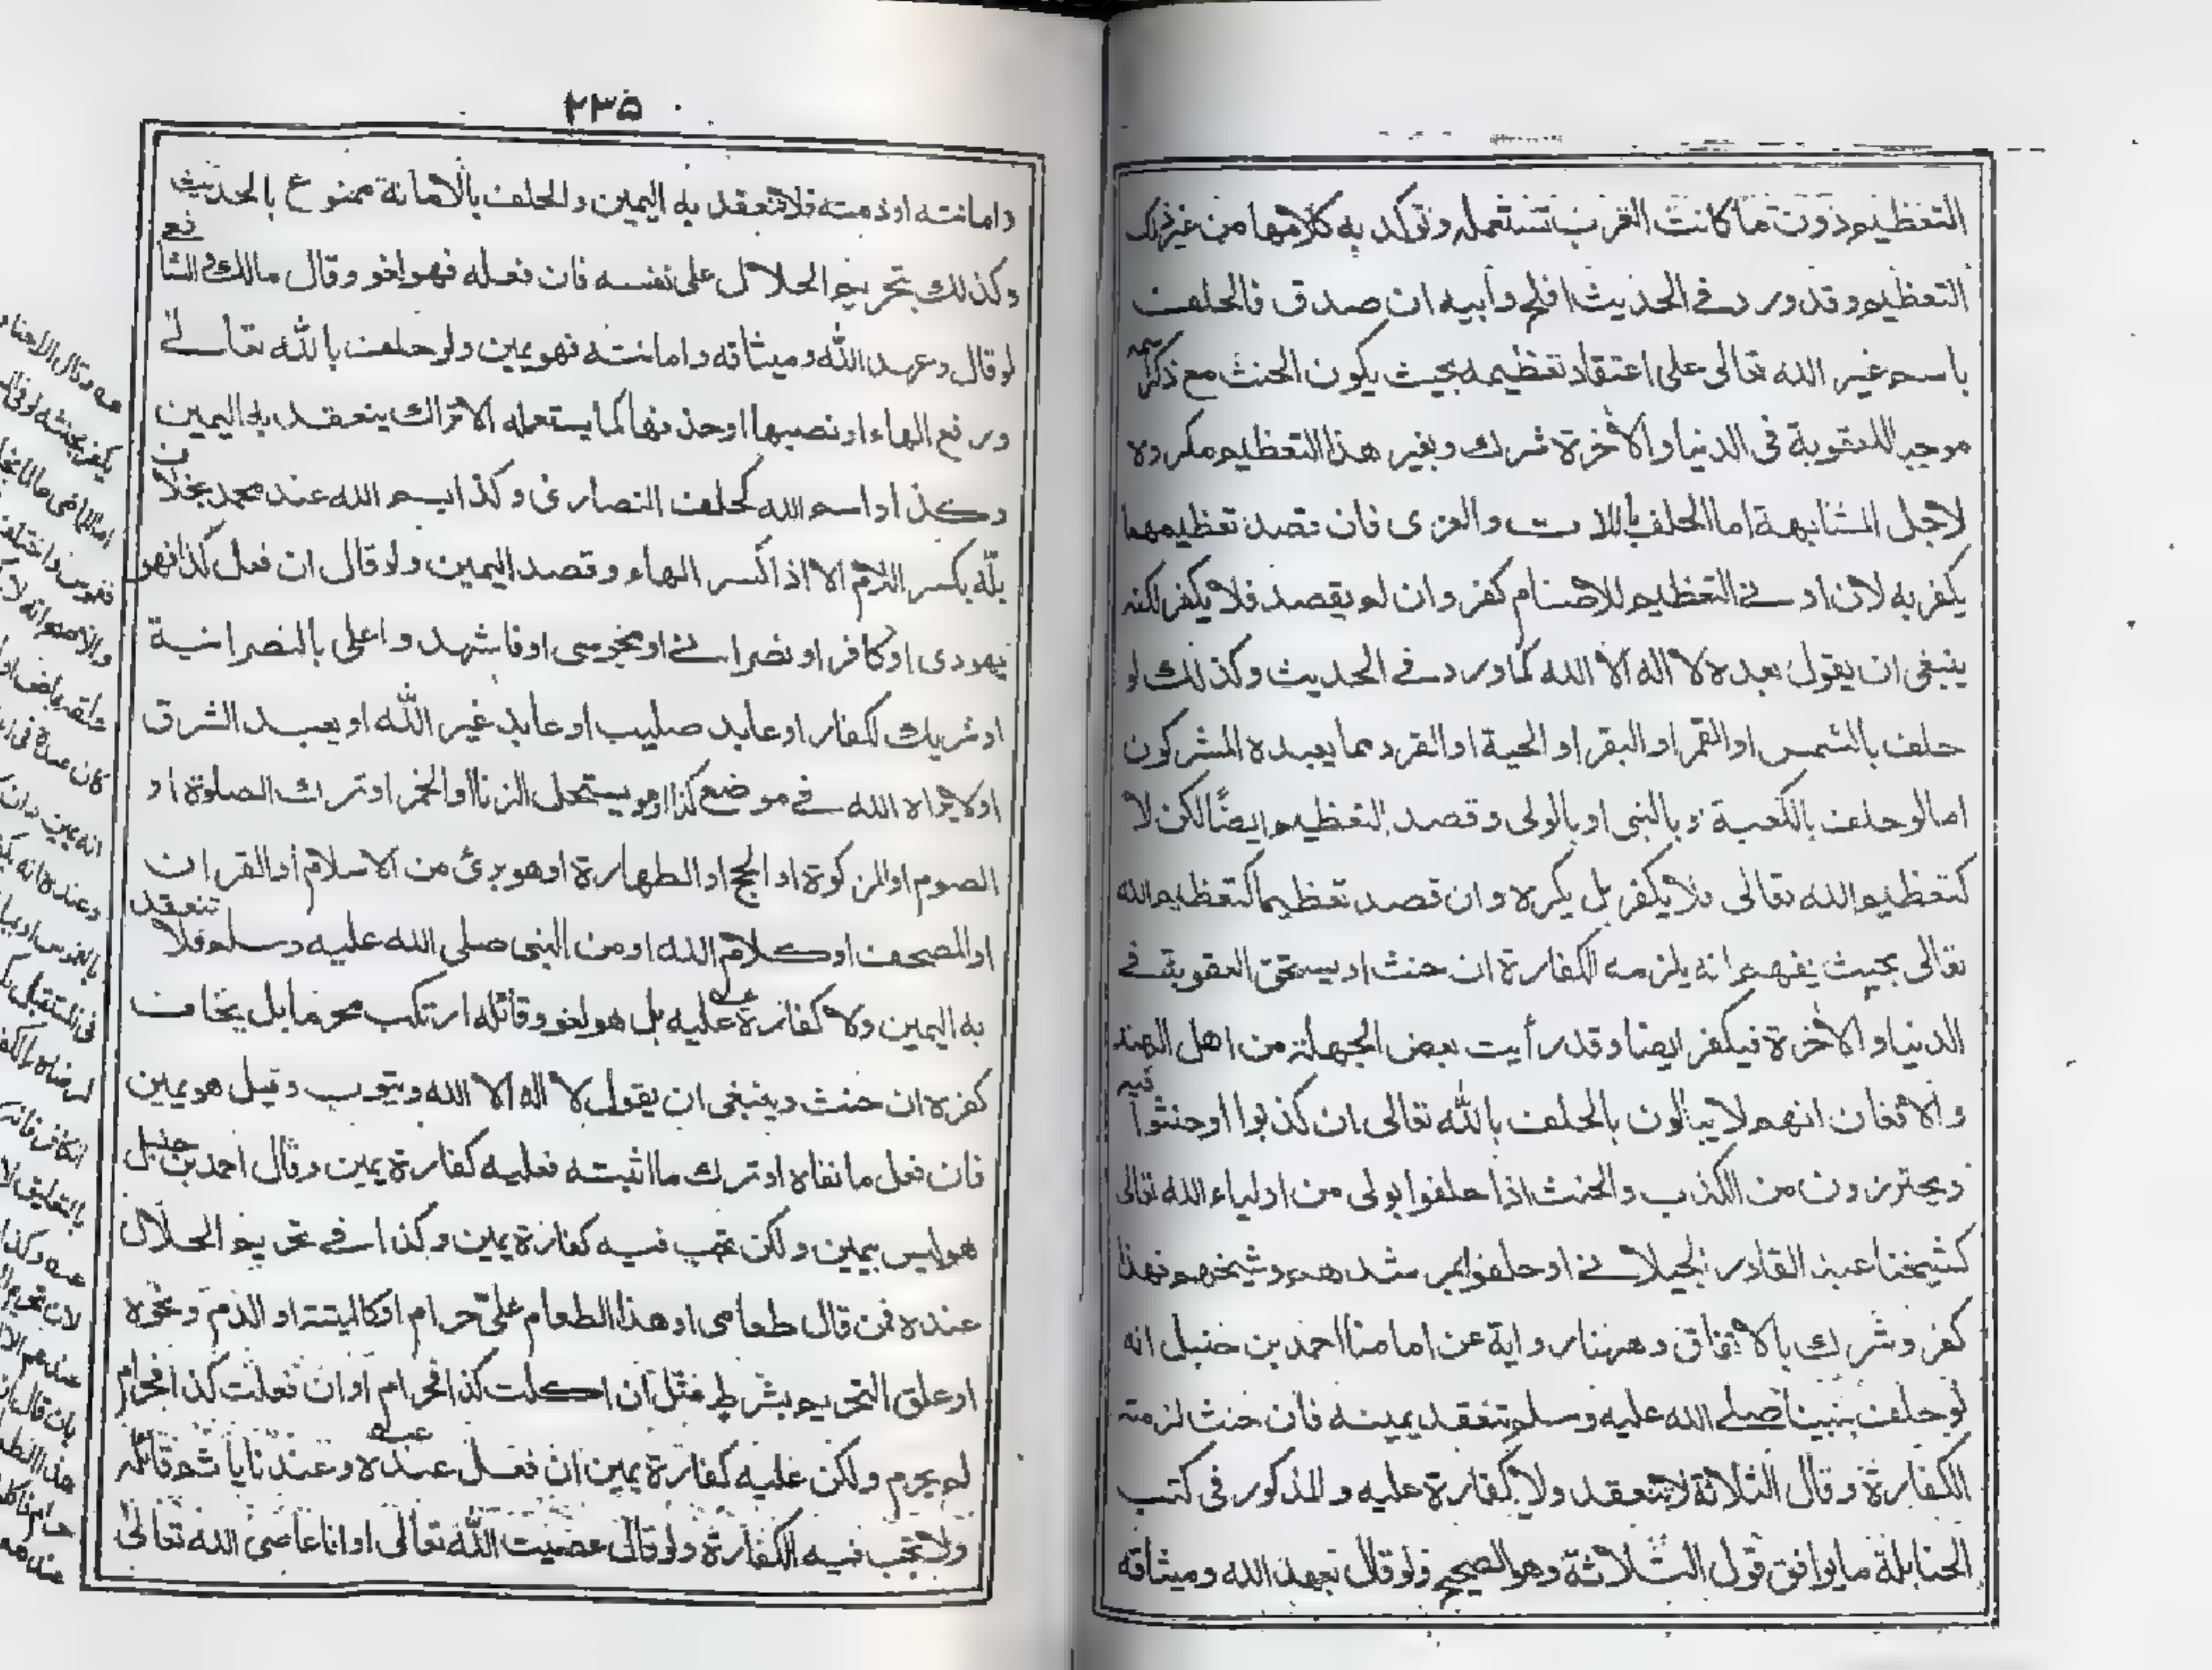 التعظيم دون ما كانت العرب تستعمله وتوكد به كلامها من غير ذلك
التعظيم وقد ورد في الحديث افلح وأبيه ان صدق فالحلف
باسم غير الله تعالى على اعتقاد تعظيمه بحيث يكون الحنث مع ذكر اسمه
موجبا للعقوبة في الدنيا والآخرة شرك وبغير هذا التعظيم مكروه
لاجل المشابهة اما الحلف باللات والعزى فان قصد تعظيمهما
يكفر به لان ادنى التعظيم للاصنام كفر وان لم يقصد فلا يكفر لكنه
ينبغي ان يقول بعده لا اله الا الله كما ورد في الحديث وكذلك لو
حلف بالشمس او القمر او البقر او الحية او القرد مما يعبده المشركون
اما لو حلف بالكعبة وبالنبي او بالولي وقصد التعظيم ايضًا لكن لا
كتعظيم الله تعالى فلا يكفر بل يكره وان قصد تعظيما كتعظيم الله
تعالى بحيث يفهم انه يلزمه الكفارة ان حنث او يستحق العقوبة في
الدنيا والآخرة فيكفر ايضا وقد رأيت بعض الجهلة من اهل الهند
والافغان انهم لا يبالون بالحلف بالله تعالى ان كذبوا او حنثوا فيه
ويحترزون من الكذب والحنث اذا حلفوا بولي من اولياء الله تعالى
كشيخنا عبد القادر الجيلاني او حلفوا بمرشدهم وشيخهم فهذا
كفر وشرك بالاتفاق وههنا رواية عن امامنا احمد بن حنبل انه
لو حلف بنبينا صلى الله عليه وسلم تنعقد يمينه فان حنث لزمته
الكفارة وقال الثلاثة لا تنعقد ولا كفارة عليه والمذكور في كتب
الحنابلة ما يوافق قول الثلاثة وهو الصحيح ولو قال بعهد الله وميثاقه
٢٣٥
وامانته او ذمته فلا تنعقد به اليمين والحلف بالامانة ممنوع بالحديث
وكذلك تحريم الحلال على نفسه فان فعله فهو لغو وقال مالك والشافع
لو قال وعهد الله وميثاقه وامانته فهو يمين ولو حلف بالله تعالى
ورفع الهاء او نصبها او حذفها كما يستعمله الاتراك ينعقد به اليمين
وكذا واسم الله كحلف النصارى وكذا بسم الله عند محمد بخلاف
بلّه بكسر اللام الا اذا كسر الهاء وقصد اليمين ولو قال ان فعل كذا فهو
يهودي او كافر او نصراني او مجوسي او فاشهد واعلى بالنصرانية
او شريك الكفار او عابد صليب او عابد غير الله او يعبد الشرق
او لا يراه الله في موضع كذا او هو يستحل الزنا او الخمر او ترك الصلوة او
الصوم او الزكوة او الحج او الطهارة او هو برئ من الاسلام او القران
او المصحف او كلام الله او من النبي صلى الله عليه وسلم فلا تنعقد
به اليمين ولا كفارة عليه بل هو لغو وقائله ارتكب محرما بل يخاف
كفره ان حنث وينبغي ان يقول لا اله الا الله ويتوب وقيل هو يمين
فان فعل ما نفاه او ترك ما اثبته فعليه كفارة يمين وقال احمد بن حنبل
هو ليس بيمين ولكن تجب فيه كفارة يمين وكذا في تحريم الحلال
عنده فمن قال طعامي او هذا الطعام عليّ حرام او كالميتة او الدم ونحوه
او علق التحريم بشرط مثل ان اكلت كذا فحرام او ان فعلت كذا فحرام
لم يحرم ولكن عليه كفارة يمين ان فعل عنده وعندنا يأثم قائله
ولا تجب فيه الكفارة ولو قال عصيت الله تعالى او انا عاصي الله تعالى